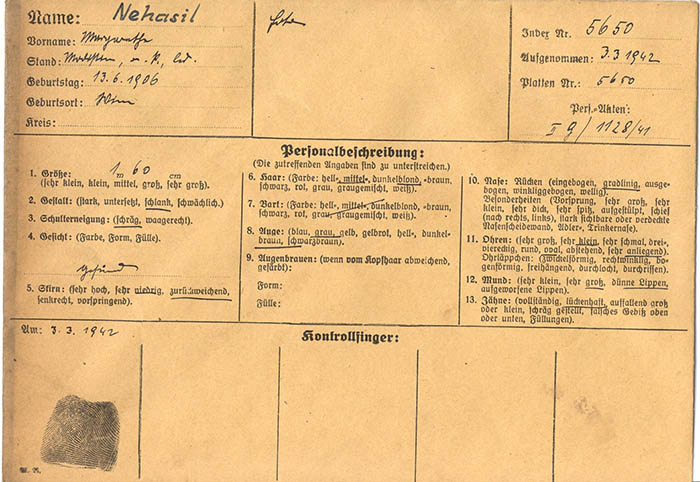 Name: Nehasil
Vorname: Margarethe
Stand:
Geburtstag: 13.6.1906
Geburtsort: Wien
Kreis:
Index Nr. 5650
Aufgenommen: 3.3 1942
Platten Nr.: 5650
Pers.-Akten:
II g / 1128/41
Personalbeschreibung:
(Die zutreffenden Angaben sind zu unterstreichen.)
1. Größe: 1 m 60 cm
(sehr klein, klein, mittel, groß, sehr groß).
2. Gestalt: (stark, untersetzt, schlank, schwächlich.)
3. Schulterneigung: (schräg, waagerecht.)
4. Gesicht: (Farbe, Form, Fülle).
gesund
5. Stirn: (sehr hoch, sehr niedrig, zurückweichend,
senkrecht, vorspringend).
6. Haar: (Farbe: hell-, mittel-, dunkelblond, -braun,
schwarz, rot, grau, graugemischt, weiß).
7. Bart: (Farbe: hell-, mittel-, dunkelblond, -braun,
schwarz, rot, grau, graugemischt, weiß).
8. Auge: (blau, grau, gelb, gelbrot, hell-, dunkel-
braun, schwarzbraun).
9. Augenbrauen: (wenn vom Kopfhaar abweichend,
gefärbt):
Form:
Fülle:
10. Nase: Rücken (eingebogen, gradlinig, ausge-
bogen, winkliggebogen, wellig).
Besonderheiten (Vorsprung, sehr groß, sehr
klein, sehr dick, sehr spitz, aufgestülpt, schief
(nach rechts, links), stark sichtbare oder verdeckte
Nasenscheidewand, Adler-, Trinkernase).
11. Ohren: (sehr groß, sehr klein, sehr schmal, drei-,
viereckig, rund, oval, abstehend, sehr anliegend).
Ohrläppchen: (zwickelförmig, rechtwinklig, bo-
genförmig, freihängend, durchlocht, durchrissen).
12. Mund: (sehr klein, sehr groß, dünne Lippen,
aufgeworfene Lippen).
13. Zähne: (vollständig, lückenhaft, auffallend groß
oder klein, schräg gestellt, falsches Gebiß oben
oder unten, Füllungen).
Am: 3.3.1942
Kontrollfinger: